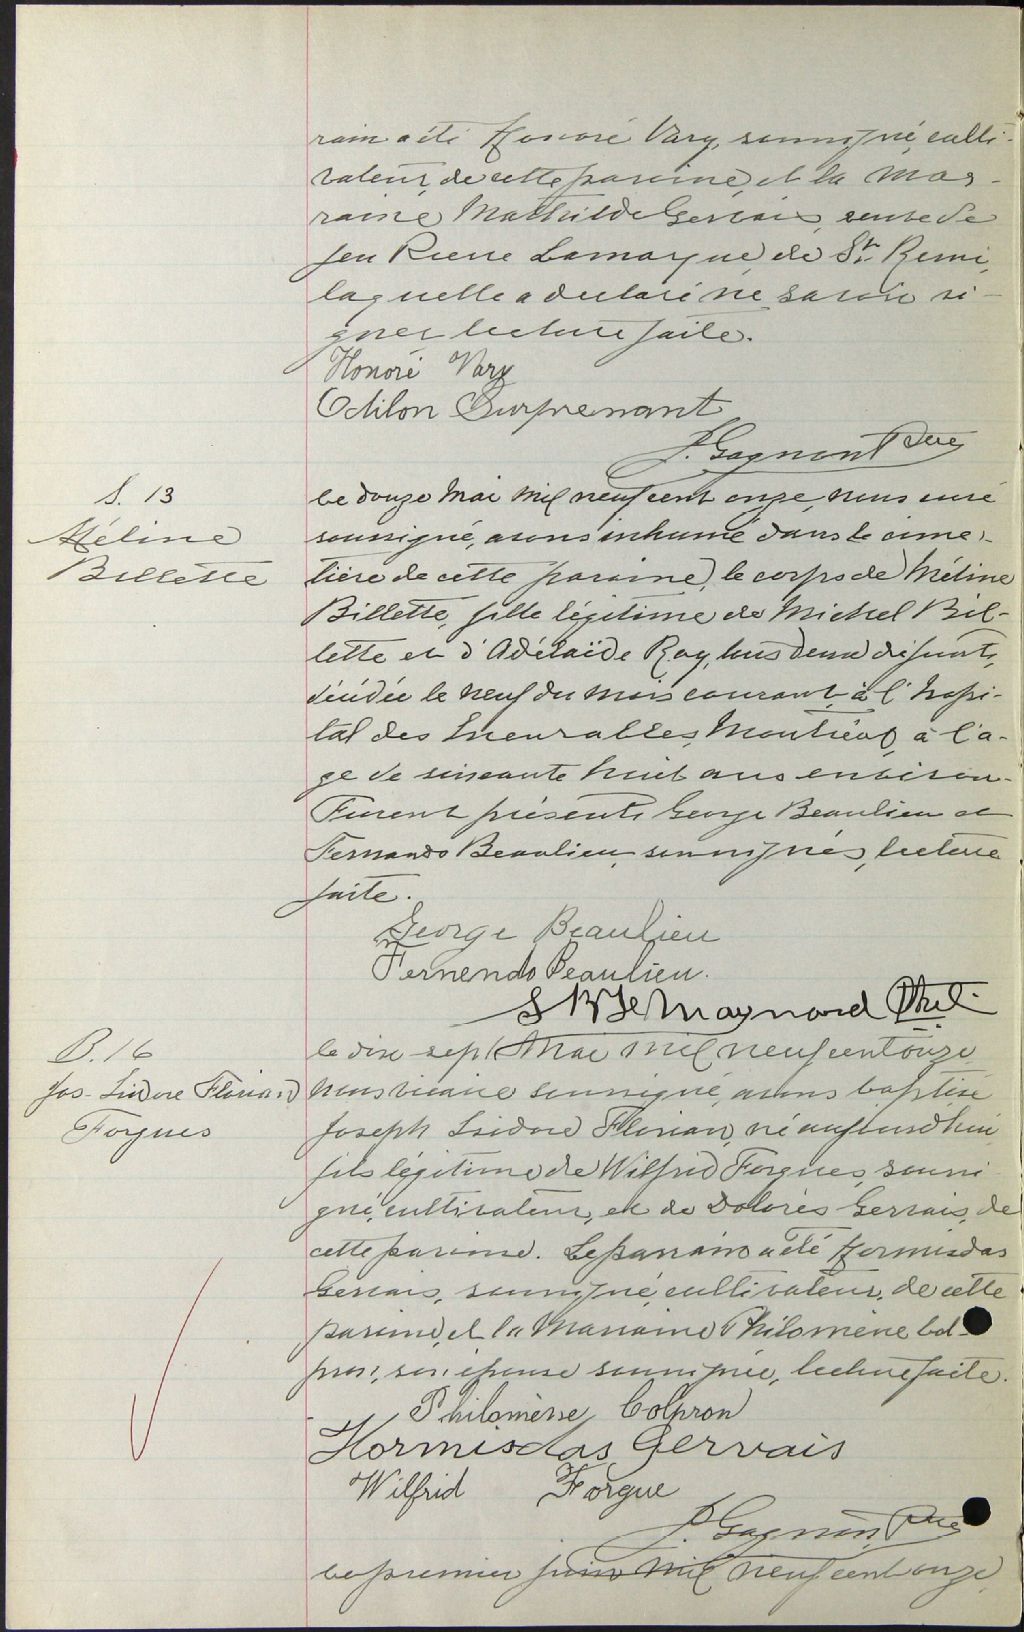 rain a été Honoré Vary, soussigné, culti-
vateur, de cette paroisse, et la mar-
raine Mathilde Gervais, veuve de
feu Pierre Lamarque, de St. Remi,
laquelle a déclaré ne savoir si-
gner lecture faite.
Honoré Vary
Odilon Surprenant
J. Gagnon Ptre
S. 13
Méline
Billette
Le douze Mai mil neuf cent onze, nous curé
soussigné, avons inhumé dans le cime-
tière de cette paroisse, le corps de Méline
Billette, fille légitime de Michel Bil-
lette et d'Adélaïde Roy, tous deux défunts,
décédée le neuf du mois courant, à l'hopi-
tal des Incurables, Montréal, à l'a-
ge de soixante huit ans environ.
Furent présents George Beaulieu et
Fernando Beaulieu, soussignés, lecture
faite.
George Beaulieu
Fernendo Beaulieu.
Maynard
B. 16
Jos- Isidore Florian
Forgues
Le dix sept Mai mil neuf cent onze
nous vicaire soussigné, avons baptisé
Joseph Isidore Florian, né aujourd'hui
fils légitime de Wilfrid Forgues, soussi
gné, cultivateur, et de Dolorès Gervais, de
cette paroisse. Le parrain a été Hormisdas
Gervais, soussigné, cultivateur, de cette
paroisse, et la Marraine Philomène Col-
pron, son épouse soussignée, lecture faite.
Philomène Colpron
Hormisdas Gervais
Wilfrid Forgue
J. Gagnon, Ptre
Le premier juin mil neuf cent onze,